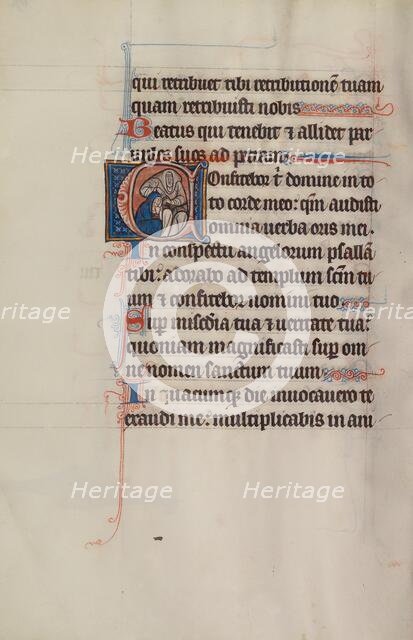 qui retribuet tibi retributionē tuam
quam retribuisti nobis
Beatus qui tenebit ⁊ allidet par
uulos suos ad petram
Confitebor t̄ domine in to
to corde meo: qm̄ audisti
omnia uerba oris mei.
In conspectu angelorum psallā
tibi: adorabo ad templum scm̄ tu
um ⁊ confitebor nomini tuo
Sup miscdia tua ⁊ ueritate tua:
quoniam magnificasti sup om
ne nomen sanctum tuum
In quacumq die inuocauero te
exaudi me: multiplicabis in ani
Heritage Heritage Heritage
Heritage Heritage
Heritage Heritage Heritage